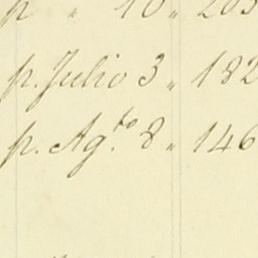 p " 10 " 205
p. Julio 3 " 182
p. Ag.to 8 " 146